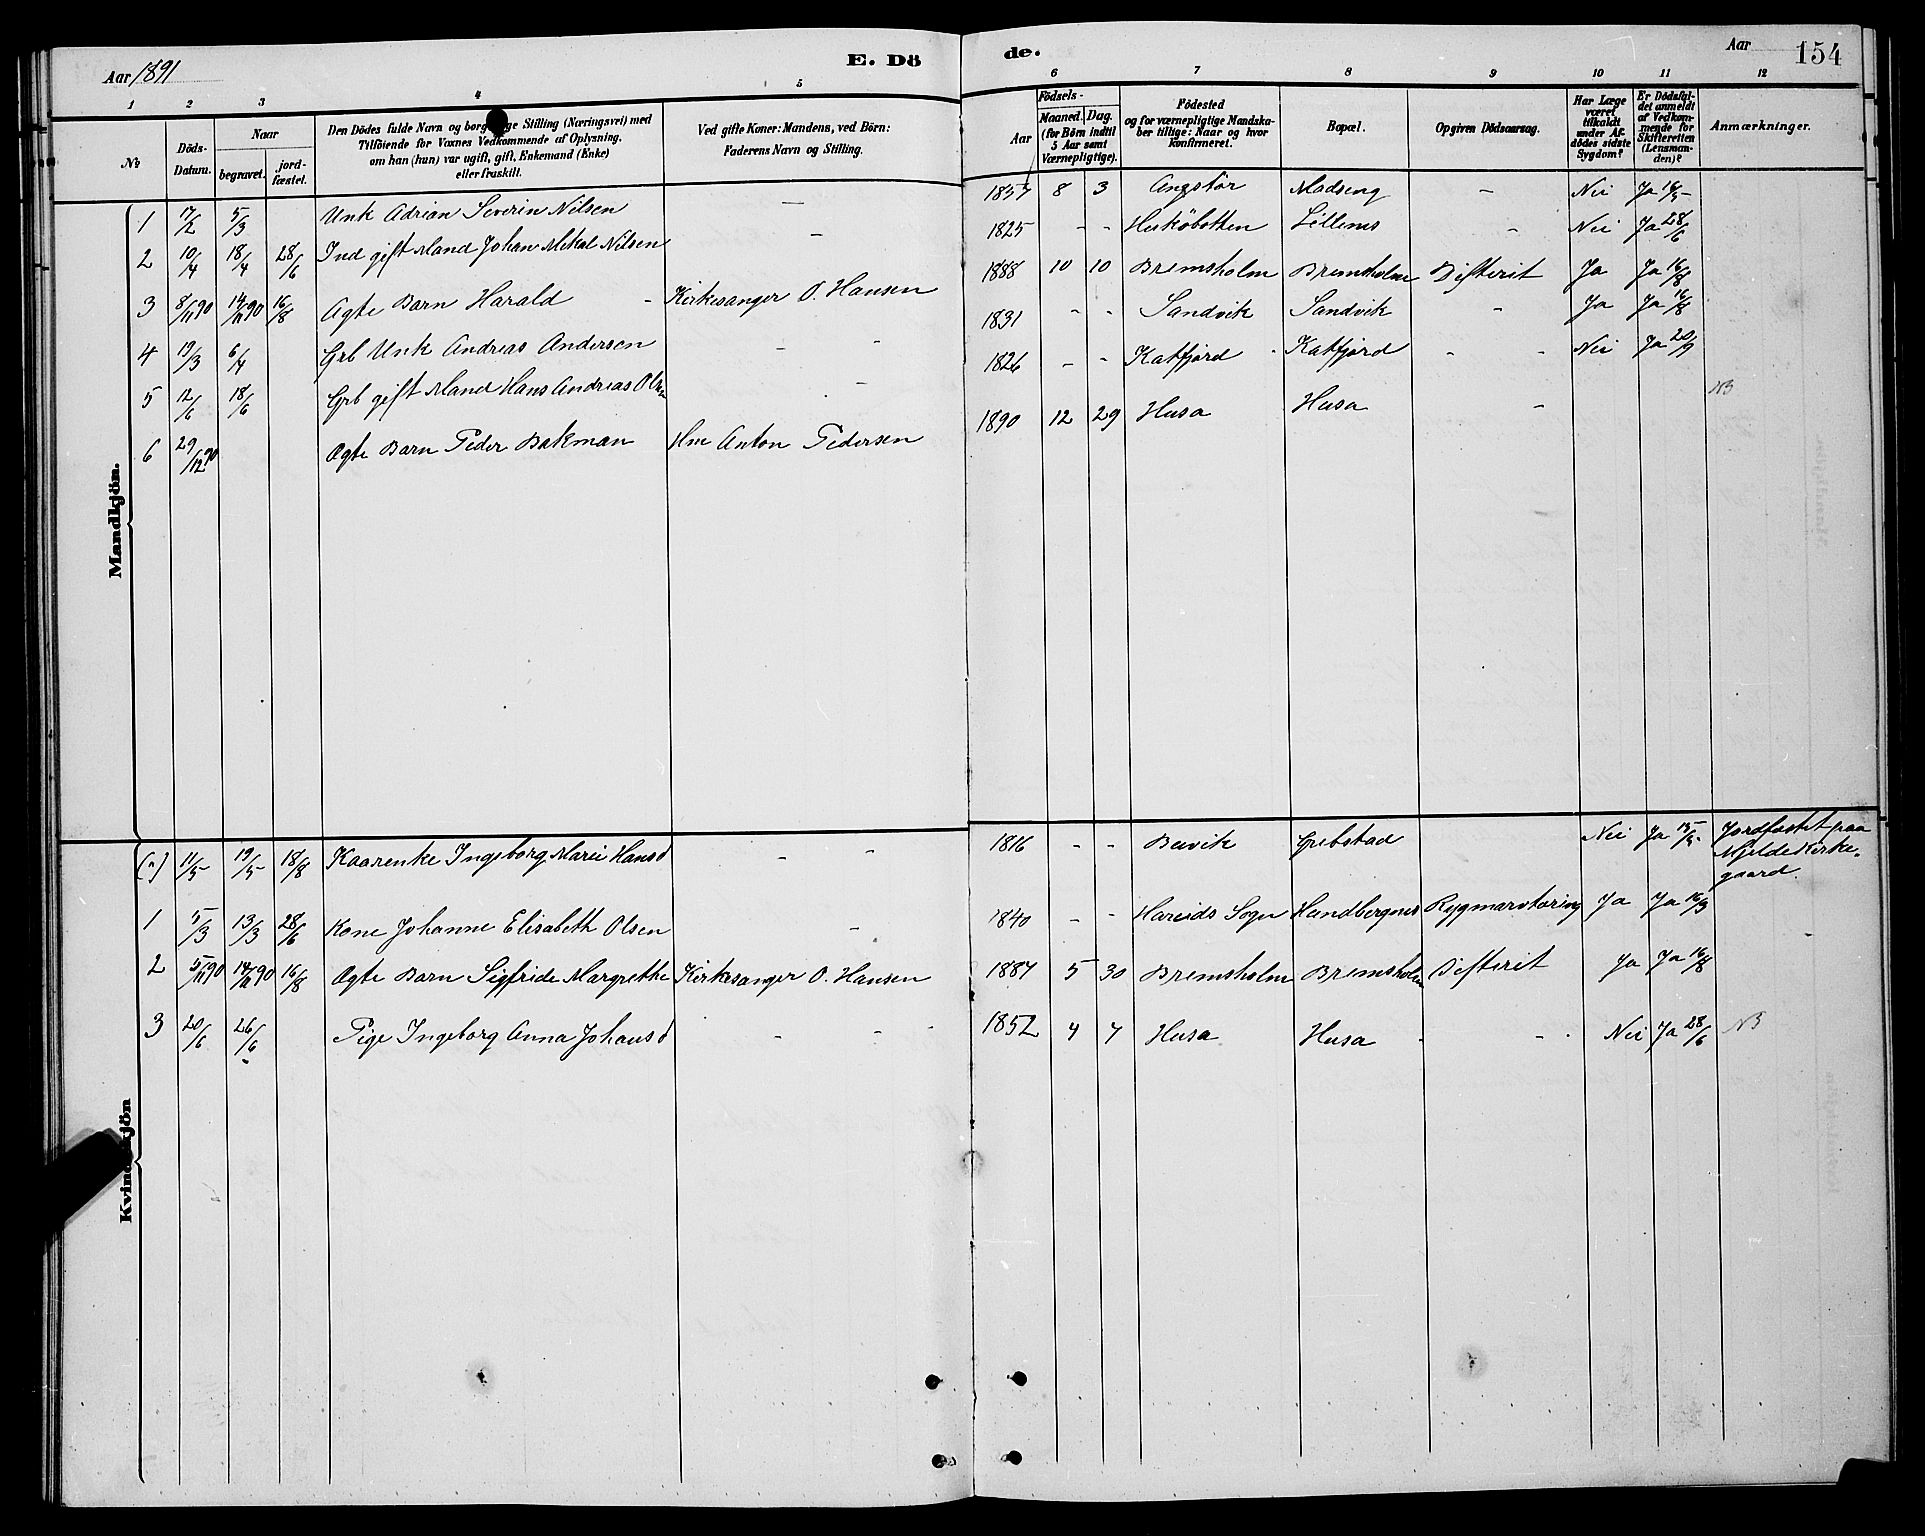 Aar 1891
E. Dö
de.
Aar 154
1 2 3 4 5 6 7 8 9 10 11 12
No
Döds-Datum.
Naar
begravet.
jord-fæstet.
Den Dödes fulde Navn og borgerlige Stilling (Næringsvei) med
Tilföiende for Voxnes Vedkommende af Oplysning,
om han (hun) var ugift, gift, Enkemand (Enke)
eller fraskilt.
Ved gifte Koner: Mandens, ved Börn:
Faderens Navn og Stilling.
Aar
Födsels-
Maaned. Dag.
(for Börn indtil
5 Aar samt
Værnepligtige).
Födested
og for værnepligtige Mandska-
ber tillige: Naar og hvor
konfirmeret.
Bopæl.
Opgiven Dödsaarsag.
Har Læge
været
tilkaldt
under Af-
dödes sidste
Sygdom?
Er Dödsfal-
det anmeldt
af Vedkom-
mende for
Skifteretten
(Lensman-
den)?
Anmærkninger.
Mandkjön.
1 17/2 5/3 Unk Adrian Severin Nilsen — 1857 8 3 Angstör Madseng - Nei Ja 16/5
2 10/4 18/4 28/6 Ind gift Mand Johan Mikal Nilsen - 1825 - - Hesköbotten Lillenes - Nei Ja 28/6
3 8/11 90 14/11 90 16/8 Ægte Barn Harald - Kirkesanger O. Hansen 1888 10 10 Bremsholm Bremsholm Difterit Ja Ja 16/8
4 19/3 6/4 Grb Unk Andreas Andersen - - 1831 - - Sandvik Sandvik - Ja Ja 16/8
5 12/6 18/6 Grb gift Mand Hans Andreas Olsen - 1826 - - Katfjord - Katfjord - - Nei Ja 20/9
6 29/12 90 Ægte Barn Peder Bakman Hm Anton Pedersen 1890 12 29 Husa Husa - NB
Kvindekjön
(") 11/5 19/5 18/8 Kaarenke Ingeborg Marie Hansd - - 1816 - - Buvik Grebstad Nei Ja 15/5 Jordfæstet paa
Mjelde Kirke-
gaard.
1 5/3 13/3 28/6 Kone Johanne Elisabeth Olsen - 1840 - - Hareids Sogn Handbergnes Rygmarvtæring Ja Ja 16/3
2 5/11 90 14/11 90 16/8 Ægte Barn Sigfride Margrethe Kirkesanger O. Hansen 1887 5 30 Bremsholm Bremsholm Difterit Ja Ja 16/8
3 20/6 26/6 Pige Ingeborg Anna Johansd - - - 1852 4 7 Husa Husa - - - Nei Ja 28/6 NB